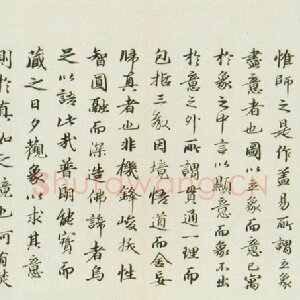 惟師之是作蓋易所謂立象
盡意者也圖以象而意已寓
於象之中言以顯意而象不出
於意之外所謂貫通一理而
包括三教因境悟道而舍妄
歸真者也非機鋒峻拔性
智圓融而深造佛諦者烏
足以語此哉普明能寶而
藏之日夕觀象以求其意
則於真如之境也何有哉
Shufawang.CN